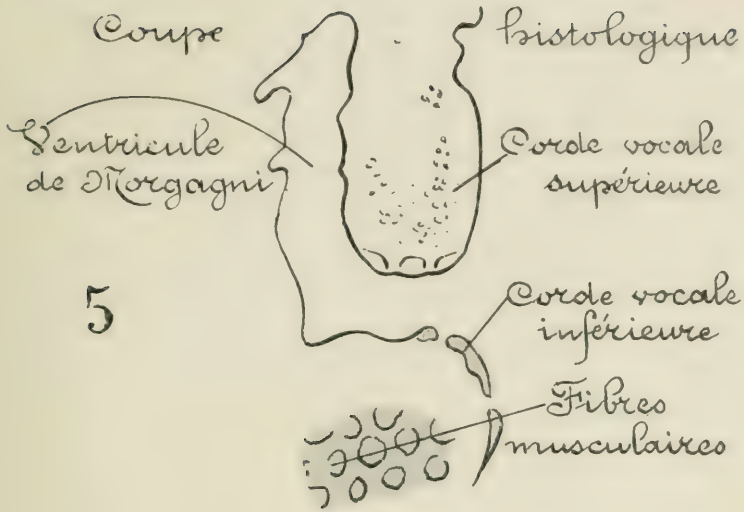 Coupe histologique
Ventricule
de Morgagni
Corde vocale
supérieure
5
Corde vocale
inférieure
Fibres
musculaires